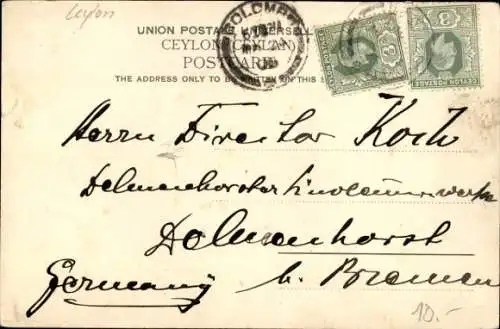 Ceylon
UNION POSTALE UNIVERSELLE
CEYLON (CEYLAN)
POSTCARD
THE ADDRESS ONLY TO BE WRITTEN ON THIS
COLOMBO
CEYLON POSTAGE
3
3
CEYLON POSTAGE
Herrn Director Koch
Delmenhorster Linoleum-werke
Delmenhorst
Germany b. Bremen
10.-